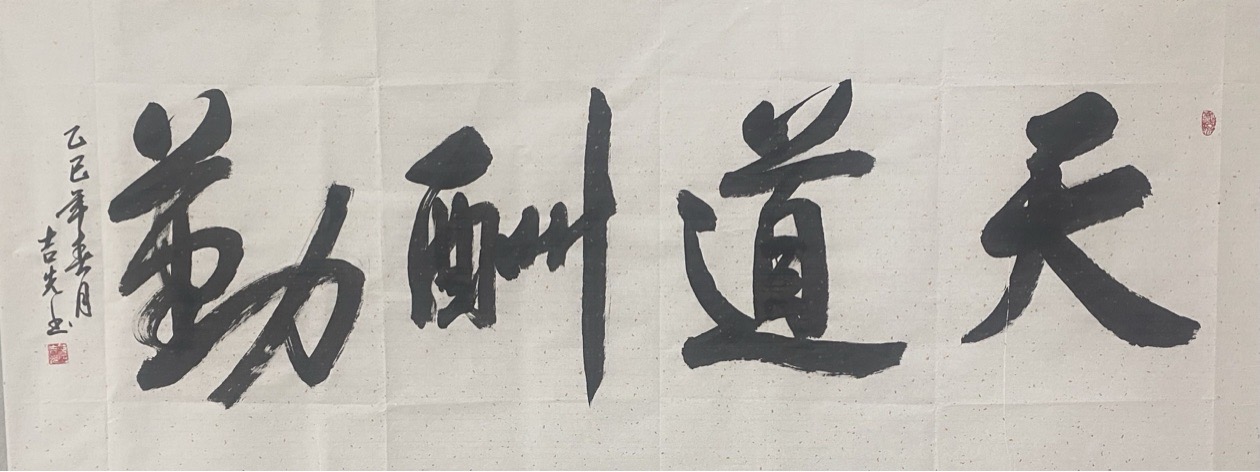 天道酬勤
乙巳年春月
吉先书